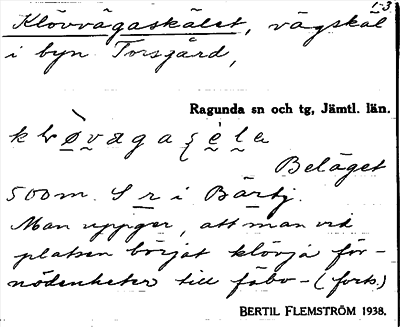 1-3
Klövvägaskälet, vägskäl
i byn Torsgård,
Ragunda sn och tg, Jämtl. län.
Beläget
500 m. S r i
Man uppger, att man vid
platsen börjat klövja för-
nödenheter till fäbo- (forts.)
BERTIL FLEMSTRÖM 1938.